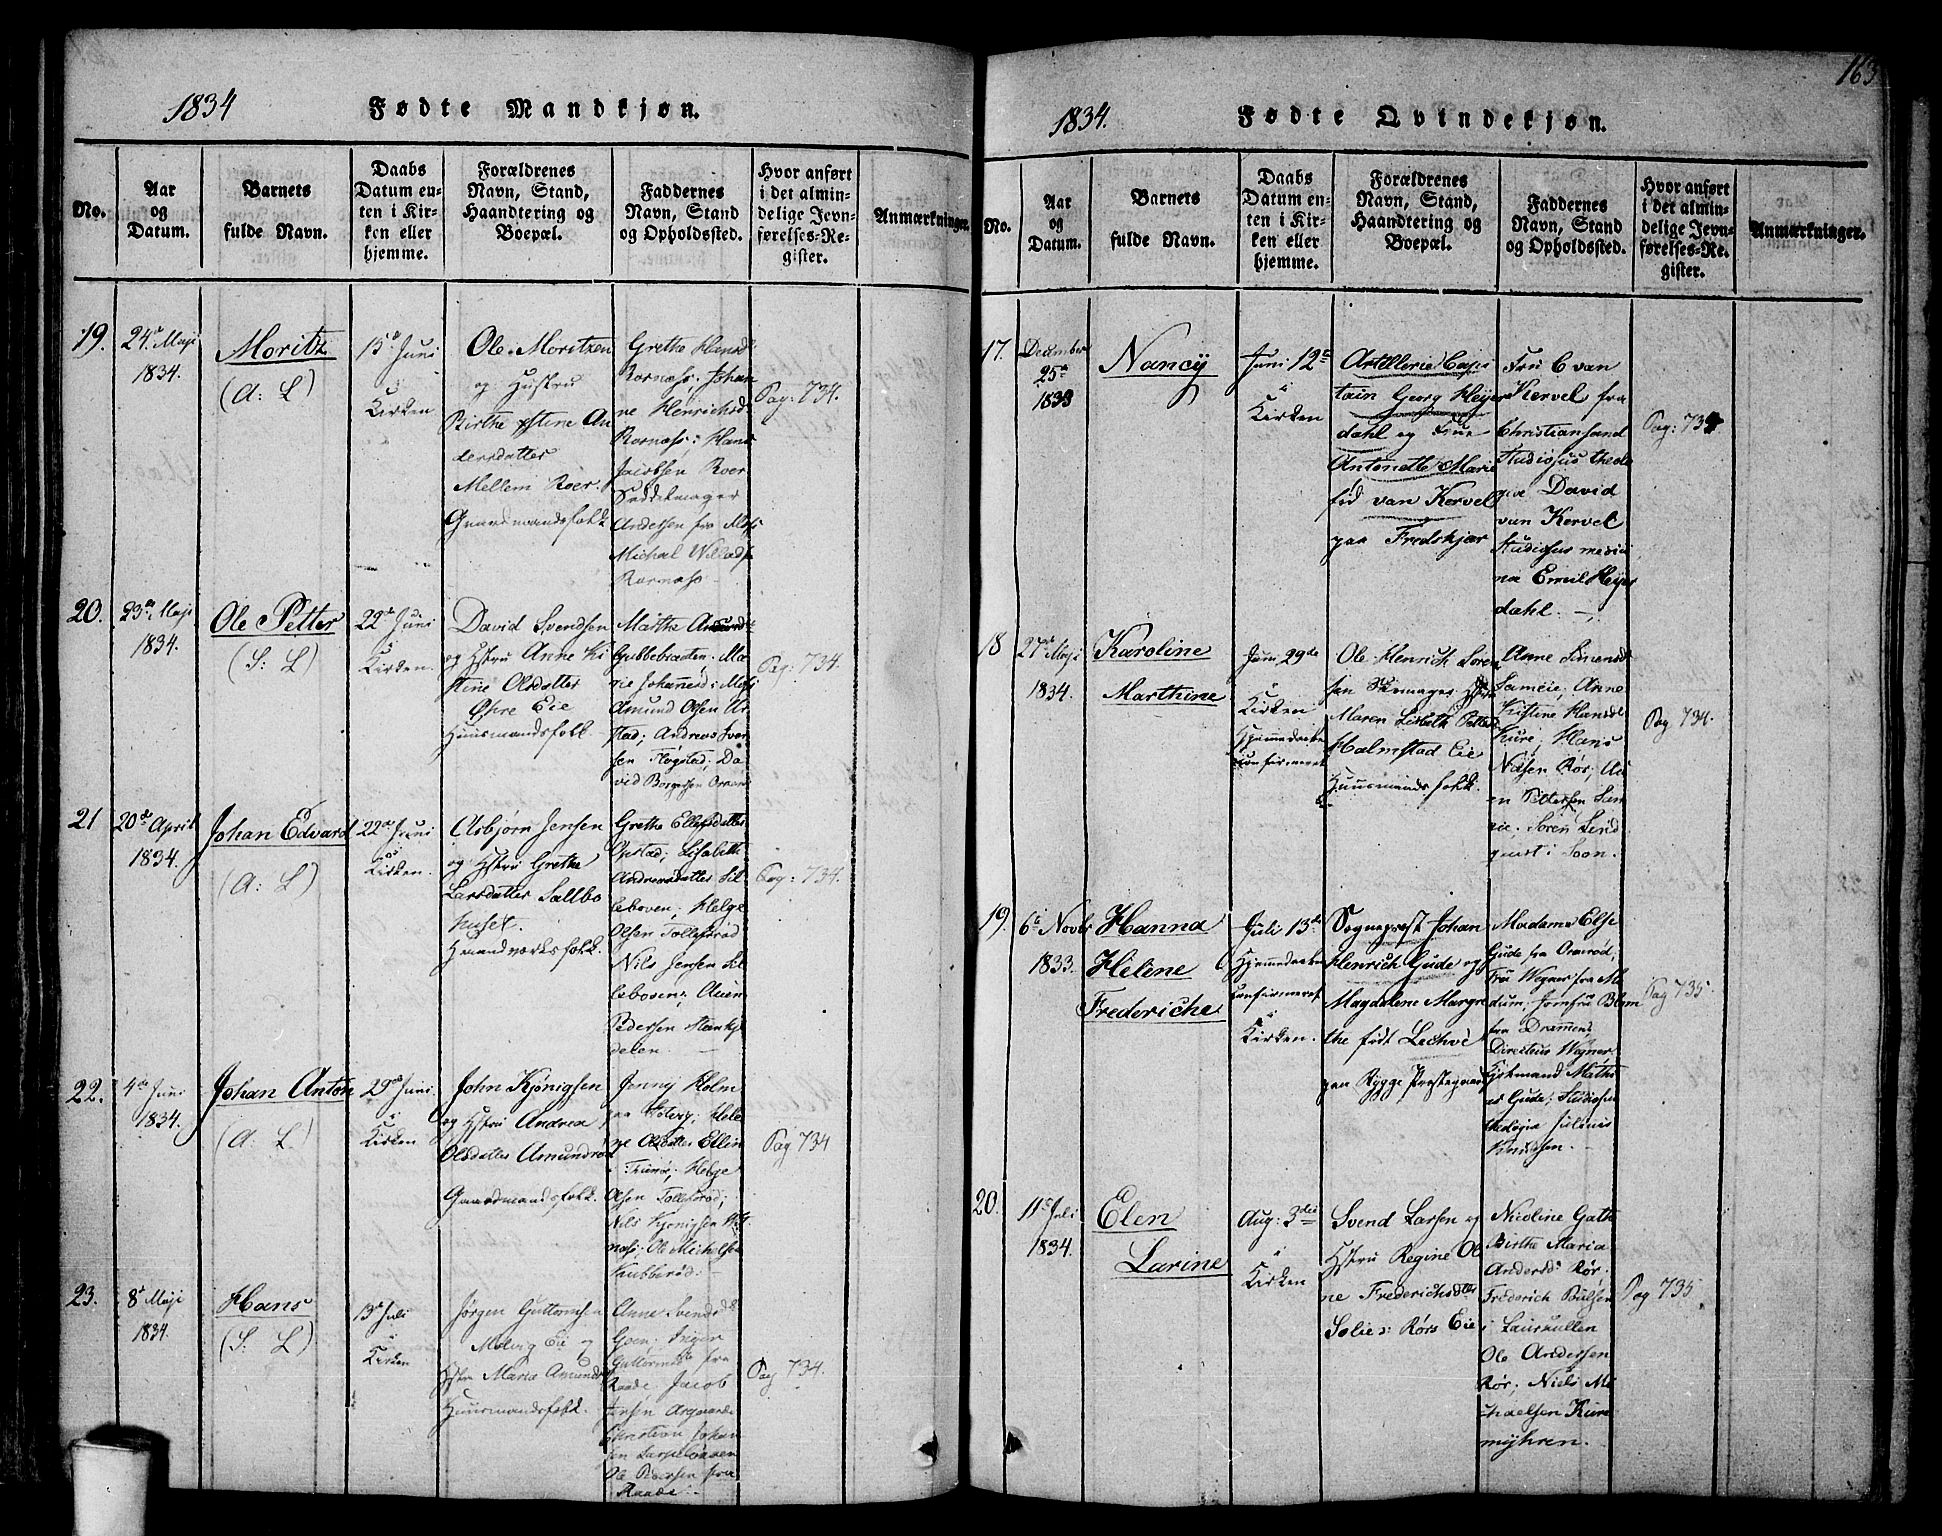 1834 Fødte Mandkjøn.
No.
Aar
og
Datum.
Barnets
fulde Navn.
Daabs
Datum en-
ten i Kir-
ken eller
hjemme.
Forældrenes
Navn, Stand,
Haandtering og
Boepæl.
Faddernes
Navn, Stand
og Opholdssted.
Hvor anført
i det almin-
delige Jevn-
førelses-Re-
gister.
Anmærkninger.
19.
24de Maji
1834.
Moritz
(A: L)
15de Juni
i
Kirken
Ole Moritzen
og Hustru
Birthe Xstine An
dersdatter
Mellem Roer.
Gaardmandsfolk
Grethe Hansd:
Rornæss; Johan
ne Henrichsd:
Rornæss; Hans
Jacobsen Roer
Saddelmager
Andersen fra Moss
Michal
Rornæss
Pag: 734.
20.
23de Maji
1834.
Ole Petter
(S: L)
22de Juni
i
Kirken.
David Svendsen
og Hstru Anne Ki
stine Olsdatter
Øhre Eie
Huusmandsfolk
Marthe
Gubbebraaten. Ma
rie Johannesd:
Amund Olsen
stad; Andreas Iver
sen Flogstad; Da
vid Borgersen
Pag: 734.
21
20de April
1834.
Johan Edvard
(A: L)
22de Juni
i
Kirken.
Asbjørn Jensen
og Hstru Grethe
Larsdatter Sallbo
huset.
Haandværksfolk.
Grethe Ellefsdatter
Opstad; Lisabeth
Andreasdatter Sil
leboven; Helge
Olsen Tollefsrød
Nils Jensen Sil
lebosen;
Pedersen
delen.
Pag: 734.
22.
4de Juni
1834.
Johan Anton
(A: L)
29de Juni
i
Kirken
John Kjønigsen
og Hstru Andrea
Olsdatter Amundrød
Gaardmandsfolk.
Jenny Holm
paa; Hele
ne Olsdatter
; Helge
Olsen Tollefsrød;
Nils Kjønigsen
næss; Ole Michelsen
Knubberød.
Pag 734
23.
8de Maji
1834.
Hans
(S: L)
13de Juli
i
Kirken
Jørgen Guttormsen
Molvig Eie og
Hstru Maria Amunds
Huusmandsfolk.
Anne Svendsd:
Goen; Inger
Guttormsd: fra
Raade Jacob
Jensen
Christian Johan
sen
Ole Pedersen fra
Raade.
Pag 734.
163
1834. Fødte Qvindekjøn.
No.
Aar
og
Datum.
Barnets
fulde Navn.
Daabs
Datum en-
ten i Kir-
ken eller
hjemme.
Forældrenes
Navn, Stand,
Haandtering og
Boepæl.
Faddernes
Navn, Stand
og Opholdssted.
Hvor anført
i det almin-
delige Jevn-
førelses-Re-
gister.
Anmærkninger.
17.
December
25de
1833
Nancy
Juni 12te
i
Kirken
Artillerie Capi
tain Georg Heyer
dahl og Frue
Antonette Marie
fød van Kervel
paa Fredskjær
Fru C van
Kervel fra
Christiansand
Studiosus theolo
giæ David
van Kervel
Studiosus medici
næ Emil Heyer
dahl.
Pag: 734
18
27de Maji
1834.
Karoline
Marthine
Juni 29de
i
Kirken
Hjemmedaaben
confirmeret
Ole Henrich Soren
sen Skomager Hstru
Maren Lisbeth Petters
Halmstad Eie
Huusmandsfolk.
Anne Simensd:
Sameie; Anne
Kistine Hansd:
Kure; Hans
Nilsen Rør;
Pettersen Sam
eie. Soren Lind
quist i Soon.
Pag 734.
19.
6te Novbr
1833.
Hanna
Helene
Frederiche
Juli 13de
Hjemmedaaben
confirmeret
i
Kirken.
Sogneprest Johan
Henrich Gude og
Magdalene Margre
the født Lechve
paa Rygge Prestegaard
Madame Else
Gude fra
Fru Wegner fra Mo
dum, Jomfru Blom
fra Drammen
Directeur Wegner
Kjøbmand Mathi
as Gude; Studiosus
theologiæ Julius
Knudsen.
Pag 735
20.
11te Juli
1834.
Elen
Larine
Aug: 3die
i
Kirken
Svend Larsen og
Hstru Regine Ol
ne Frederichsdtr
Solie: Rørs Eie
Nicoline Gath
Birthe Maria
Andersd: Rør.
Frederich Poulsen
i Laurkullen
Ole Andersen
Rør; Niels Mi
chaelsen Kure
myhren.
Pag 735